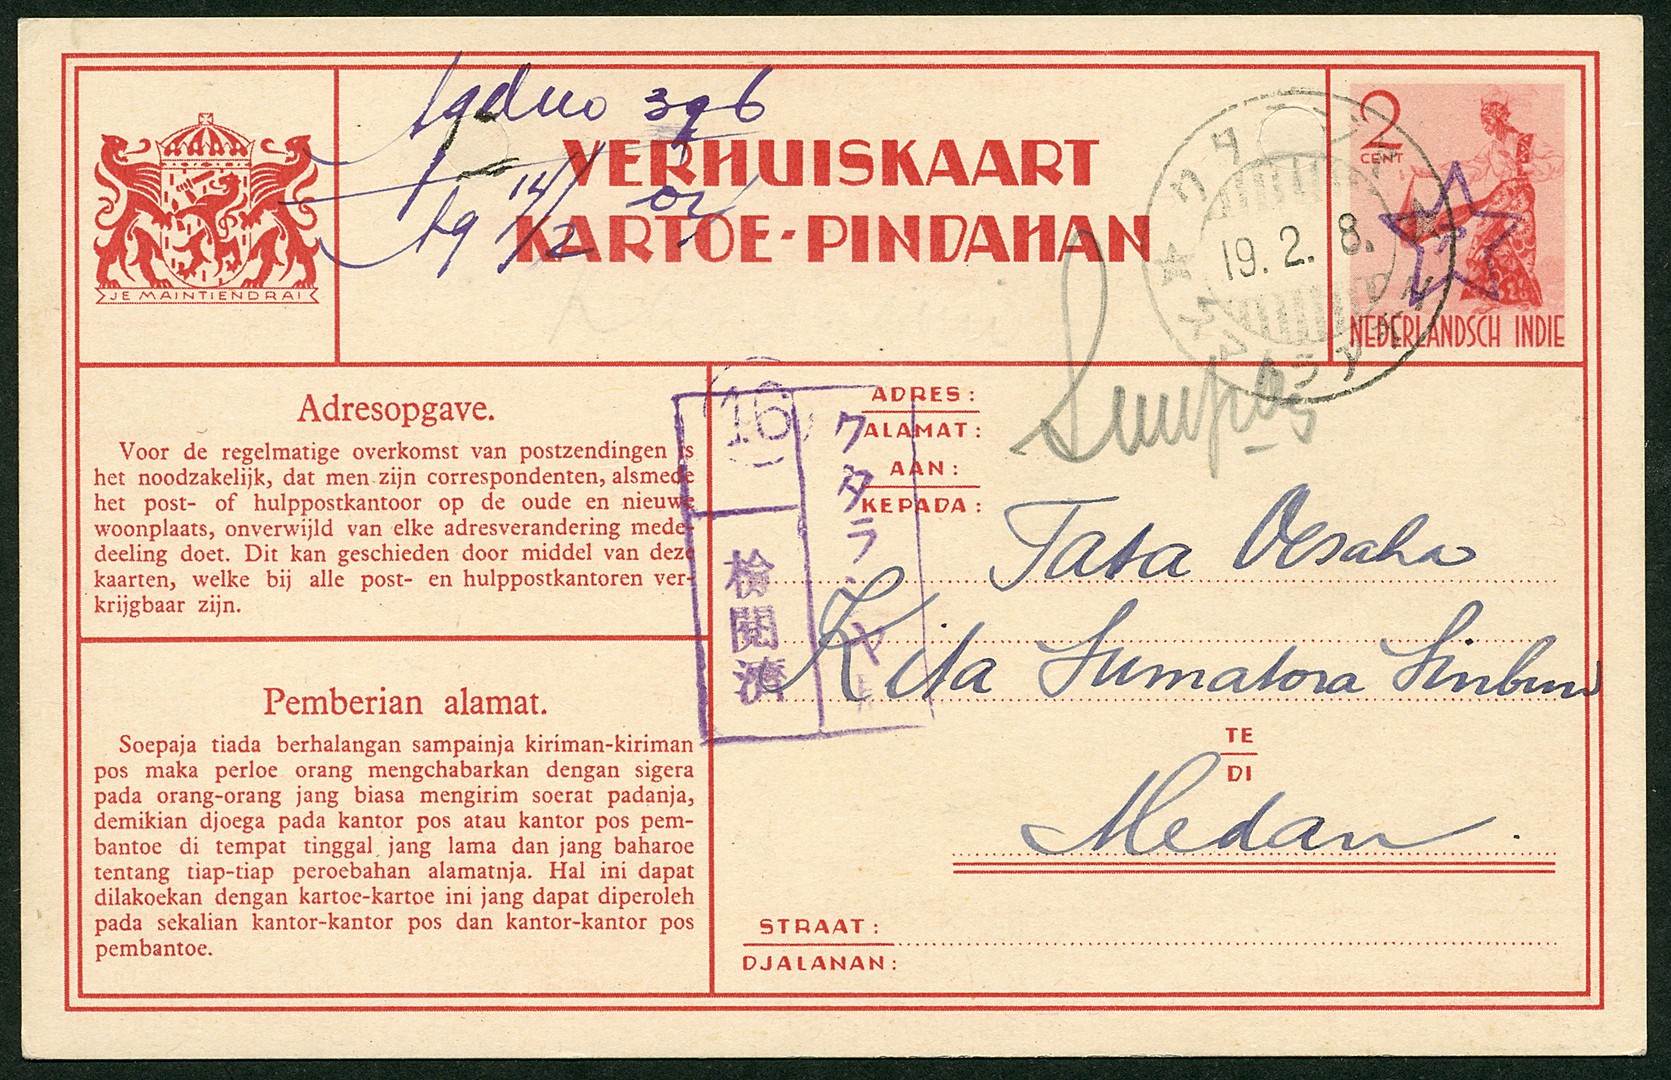 Agduo 396
14/2 02
19
VERHUISKAART
KARTOE-PINDAHAN
JE MAINTIENDRAI
2
CENT
NEDERLANDSCH INDIE
19. 2. 8.
Adresopgave.
Voor de regelmatige overkomst van postzendingen is
het noodzakelijk, dat men zijn correspondenten, alsmede
het post- of hulppostkantoor op de oude en nieuwe
woonplaats, onverwijld van elke adresverandering mede-
deeling doet. Dit kan geschieden door middel van deze
kaarten, welke bij alle post- en hulppostkantoren ver-
krijgbaar zijn.
Pemberian alamat.
Soepaja tiada berhalangan sampainja kiriman-kiriman
pos maka perloe orang mengchabarkan dengan sigera
pada orang-orang jang biasa mengirim soerat padanja,
demikian djoega pada kantor pos atau kantor pos pem-
bantoe di tempat tinggal jang lama dan jang baharoe
tentang tiap-tiap peroebahan alamatnja. Hal ini dapat
dilakoekan dengan kartoe-kartoe ini jang dapat diperoleh
pada sekalian kantor-kantor pos dan kantor-kantor pos
pembantoe.
16
検閲済
クタラジヤ
ADRES:
ALAMAT:
AAN:
KEPADA:
Tata Oesaha
Kita Sumatora Sinbun
TE
DI
Medan.
STRAAT:
DJALANAN: